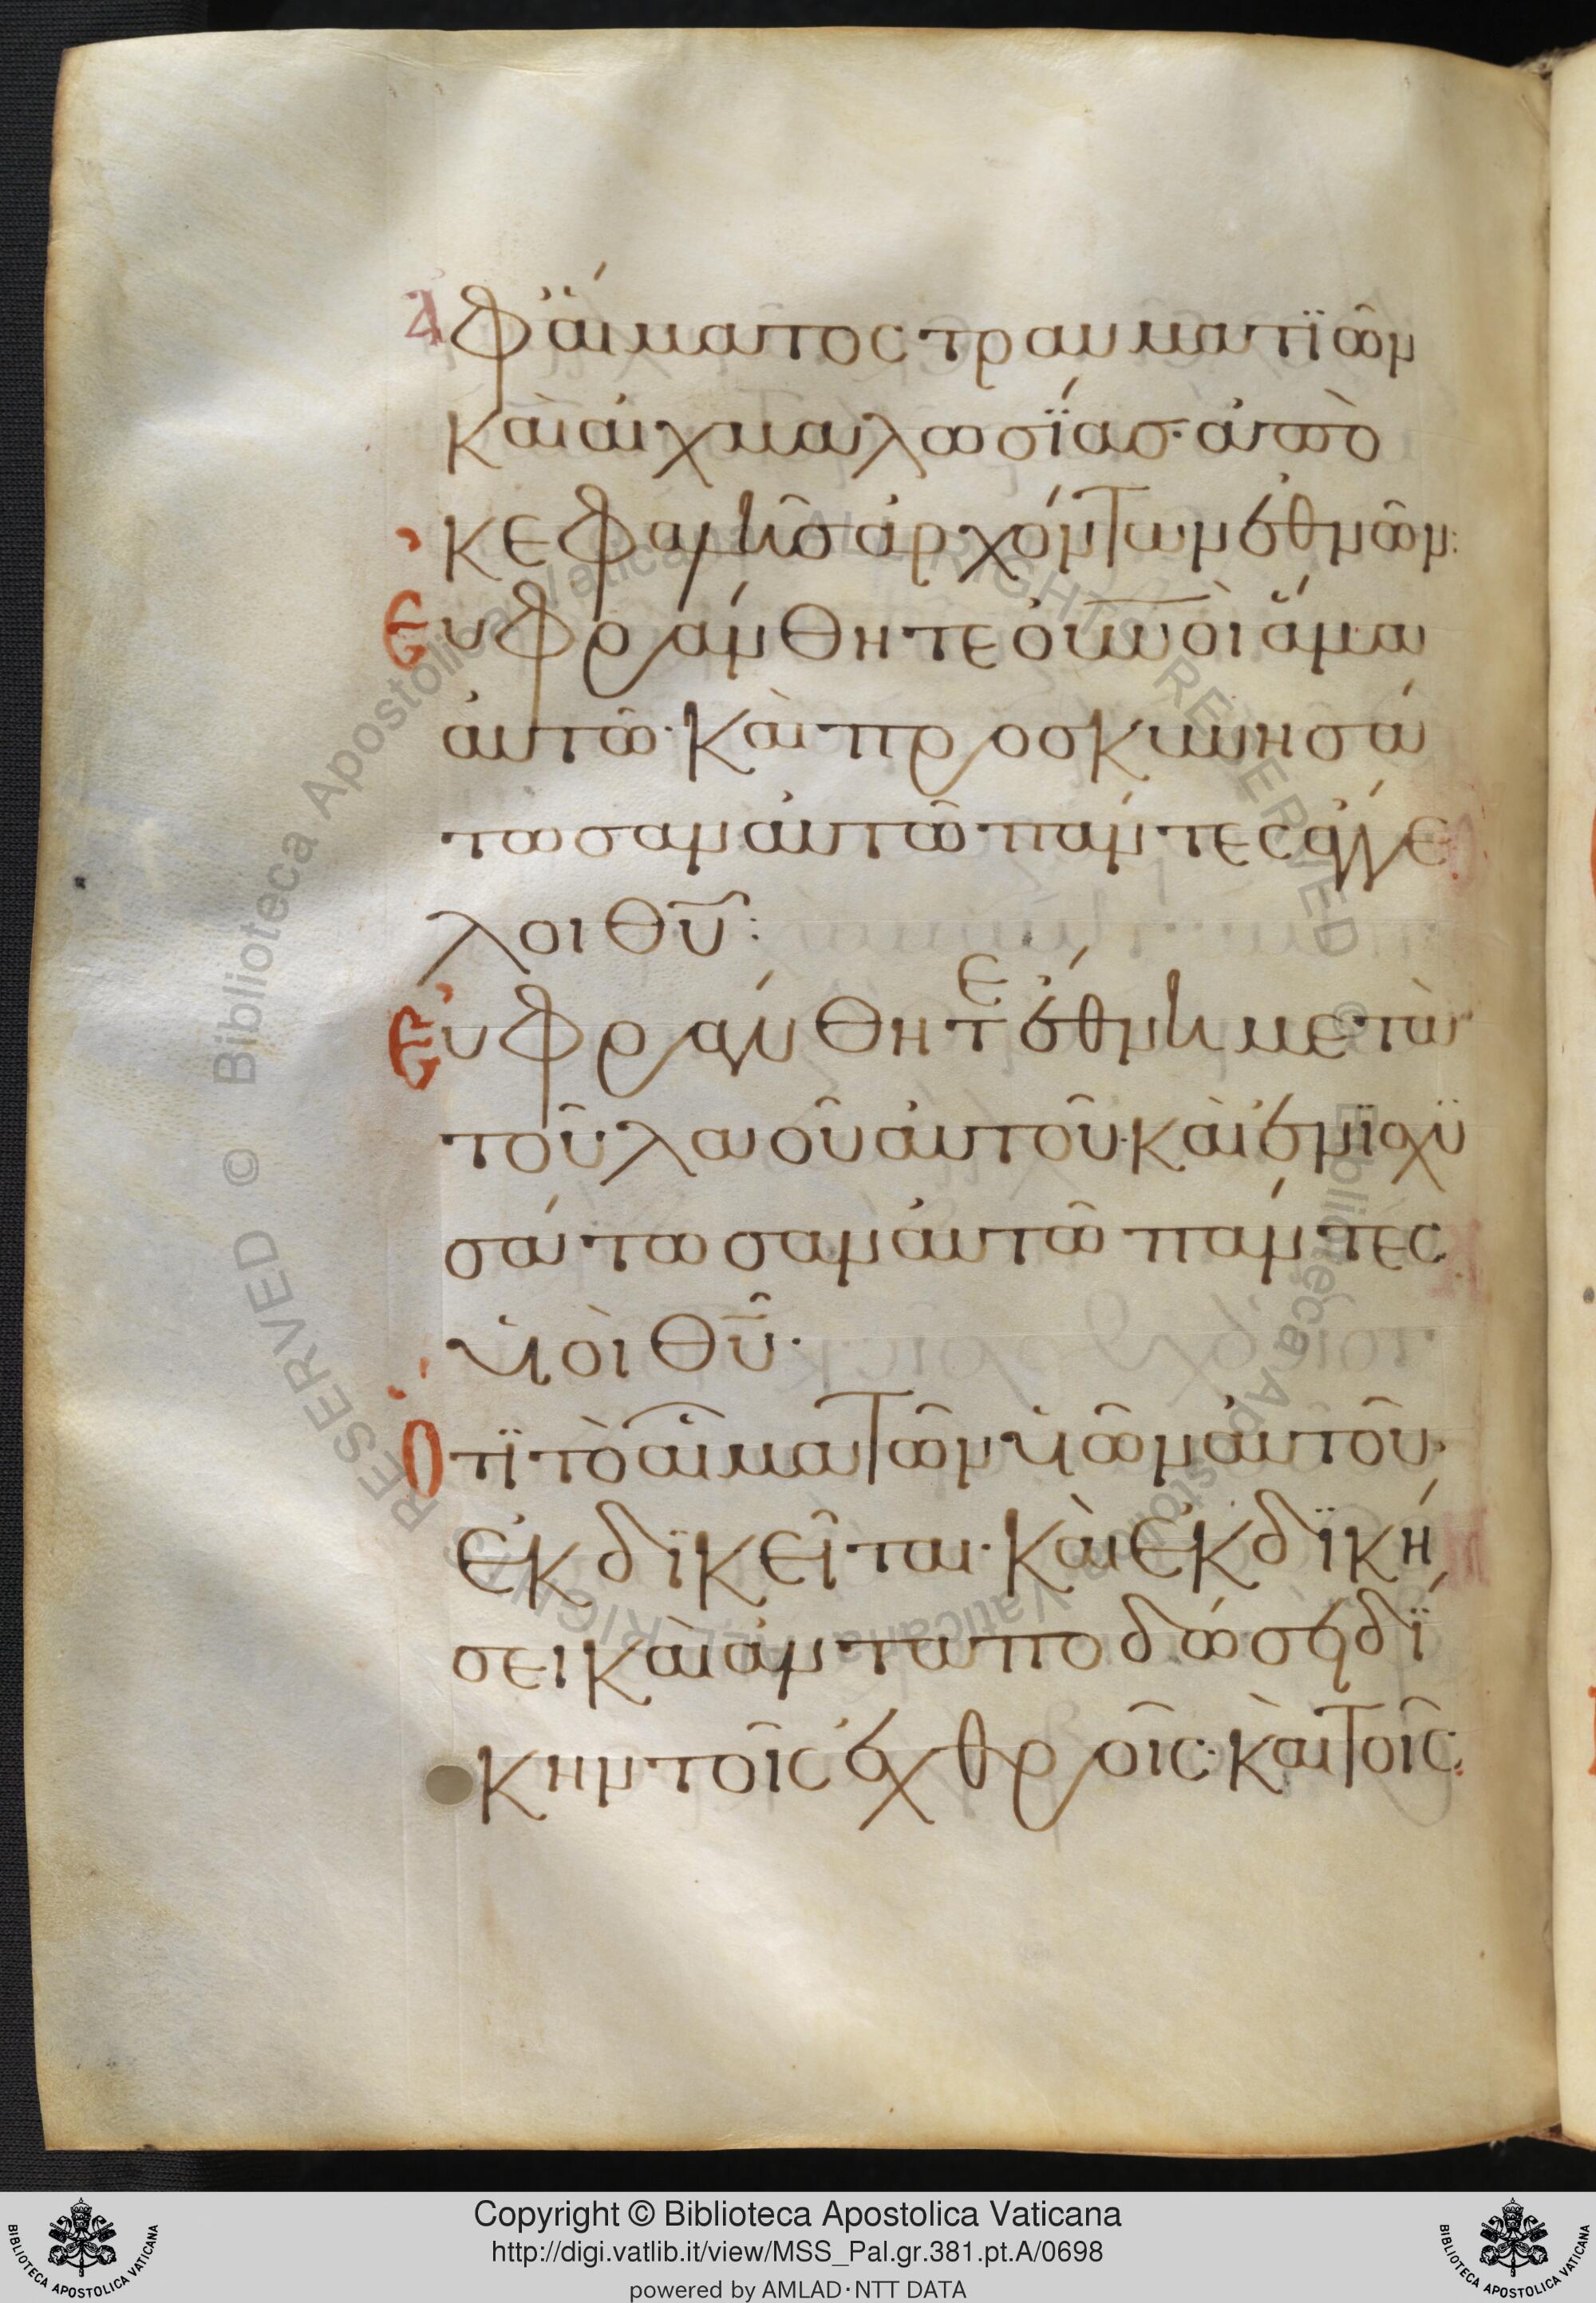 Ἀφ αἵματος τραυματϊῶν
καὶ αἰχμαλωσΐας· ἀπὸ
κεφαλῆς ἀρχόντων ἐθνῶν:
Εὐφράνθητε οὐνοὶ ἅμα
αὐτῶ· καὶ προσκυνησά
τωσαν αὐτῶ πάντες ἄγγε
λοι θῦ:
Εὐφράνθητε ἔθνη μετὰ
τοῦ λαοῦ αὐτοῦ· καὶ ἐνϊσχϋ
σάτωσαν αὐτῶ πάντες
υἱοὶ θῦ·
Ὅτϊ τὸ αἷμα τῶν υἱῶν αὐτοῦ
ἐκδϊκεῖται· καὶ ἐκδϊκή
σει καὶ ἀνταποδώσει δΐ
κην τοῖς ἐχθροῖς· καὶ τοῖς
© Biblioteca Apostolica Vaticana ALL RIGHTS RESERVED
Copyright © Biblioteca Apostolica Vaticana
http://digi.vatlib.it/view/MSS_Pal.gr.381.pt.A/0698
powered by AMLAD·NTT DATA
BIBLIOTECA APOSTOLICA VATICANA
BIBLIOTECA APOSTOLICA VATICANA